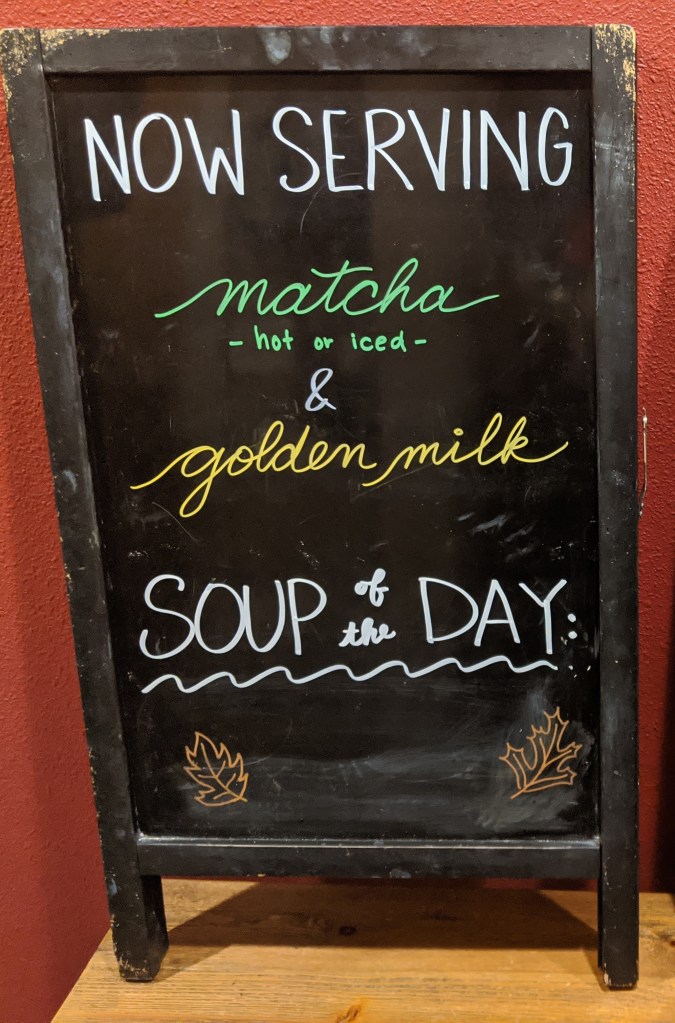 NOW SERVING
matcha
- hot or iced -
&
golden milk
SOUP of the DAY: